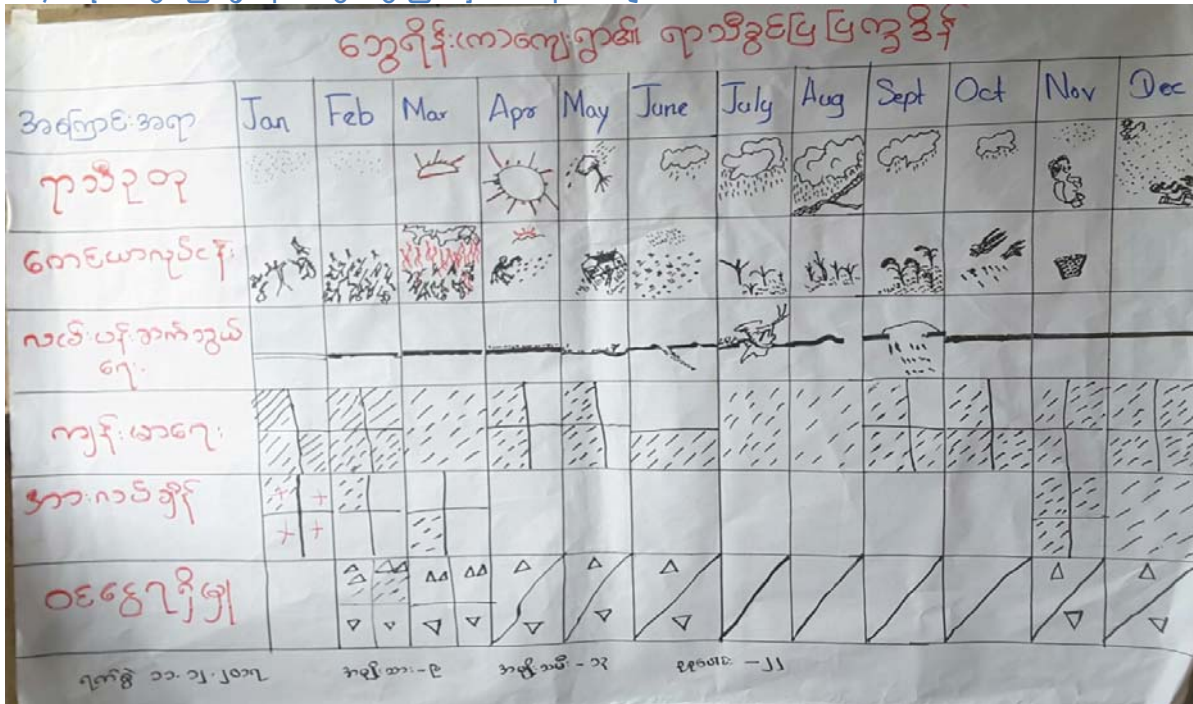 ဘွေရိန်းကာကျေးရွာ၏ ရာသီခွင်ပြ ပြက္ခဒိန်
အကြောင်းအရာ Jan Feb Mar Apr May June July Aug Sept Oct Nov Dec
ရာသီဥတု
တောင်ယာလုပ်ငန်း
လမ်းပန်းဆက်သွယ်
ရေး
ကျန်းမာရေး
အားလပ်ချိန်
ဝင်ငွေရရှိမှု
ရက်စွဲ ၁၁.၁၂.၂၀၁၇ အမျိုးသား - ၉ အမျိုးသမီး - ၁၃ စုစုပေါင်း - ၂၂